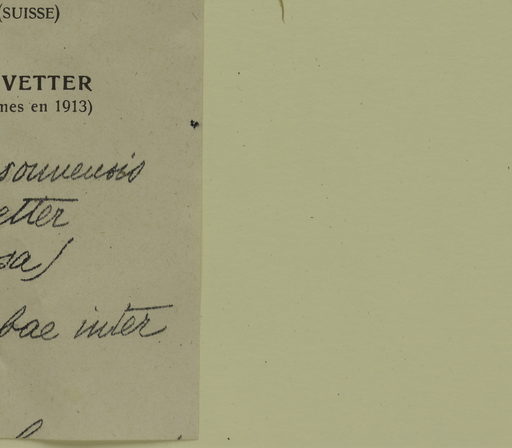 (SUISSE)
VETTER
mes en 1913)
sonnensis
etter
sa)
bae inter